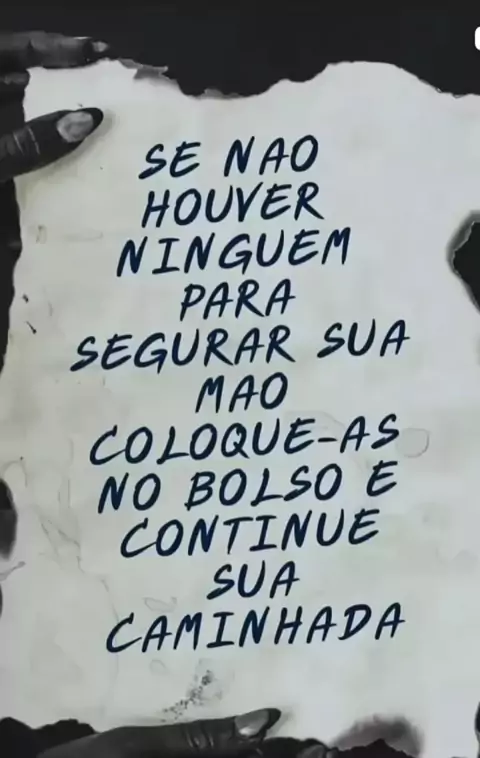 SE NAO
HOUVER
NINGUEM
PARA
SEGURAR SUA
MAO
COLOQUE-AS
NO BOLSO E
CONTINUE
SUA
CAMINHADA